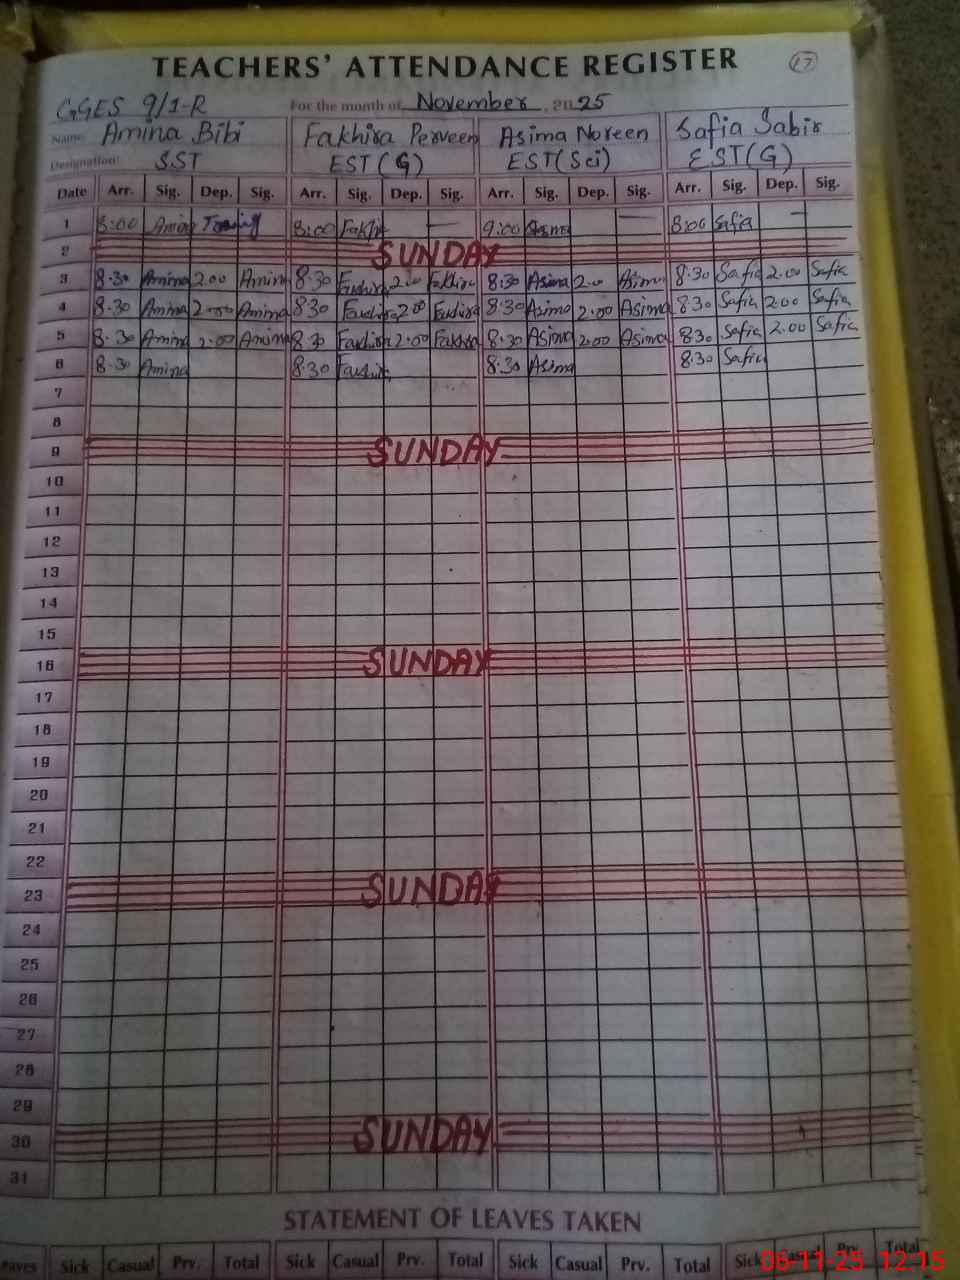 TEACHERS' ATTENDANCE REGISTER 17
GGES 9/1-R For the month of November, 2025
Name: Amina Bibi Fakhira Perveen Asima Noreen Safia Sabir
Designation: SST EST(G) EST(Sci) EST(G)
Date Arr. Sig. Dep. Sig. Arr. Sig. Dep. Sig. Arr. Sig. Dep. Sig. Arr. Sig. Dep. Sig.
1 8:00 Amina 8:00 Fakhi — 9:00 Asima — 8:00 Safia —
2 SUNDAY
3 8.30 Amina 2.00 Amina 8.30 Fakhira 2.00 Fakhira 8:30 Asima 2.00 Asima 8.30 Safia 2.00 Safia
4 8.30 Amina 2.00 Amina 8.30 Fakhira 2.00 Fakhira 8:30 Asima 2.00 Asima 8.30 Safia 2.00 Safia
5 8.30 Amina 2.00 Amina 8.30 Fakhira 2.00 Fakhira 8.30 Asima 2.00 Asima 8.30 Safia 2.00 Safia
6 8.30 Amina 8.30 Fakhira 8.30 Asima 8.30 Safia
7
8
9 SUNDAY
10
11
12
13
14
15
16 SUNDAY
17
18
19
20
21
22
23 SUNDAY
24
25
26
27
28
29
30 SUNDAY
31
STATEMENT OF LEAVES TAKEN
eaves Sick Casual Prv. Total Sick Casual Prv. Total Sick Casual Prv. Total Sick Casual Prv. Total
06-11-25 12:15